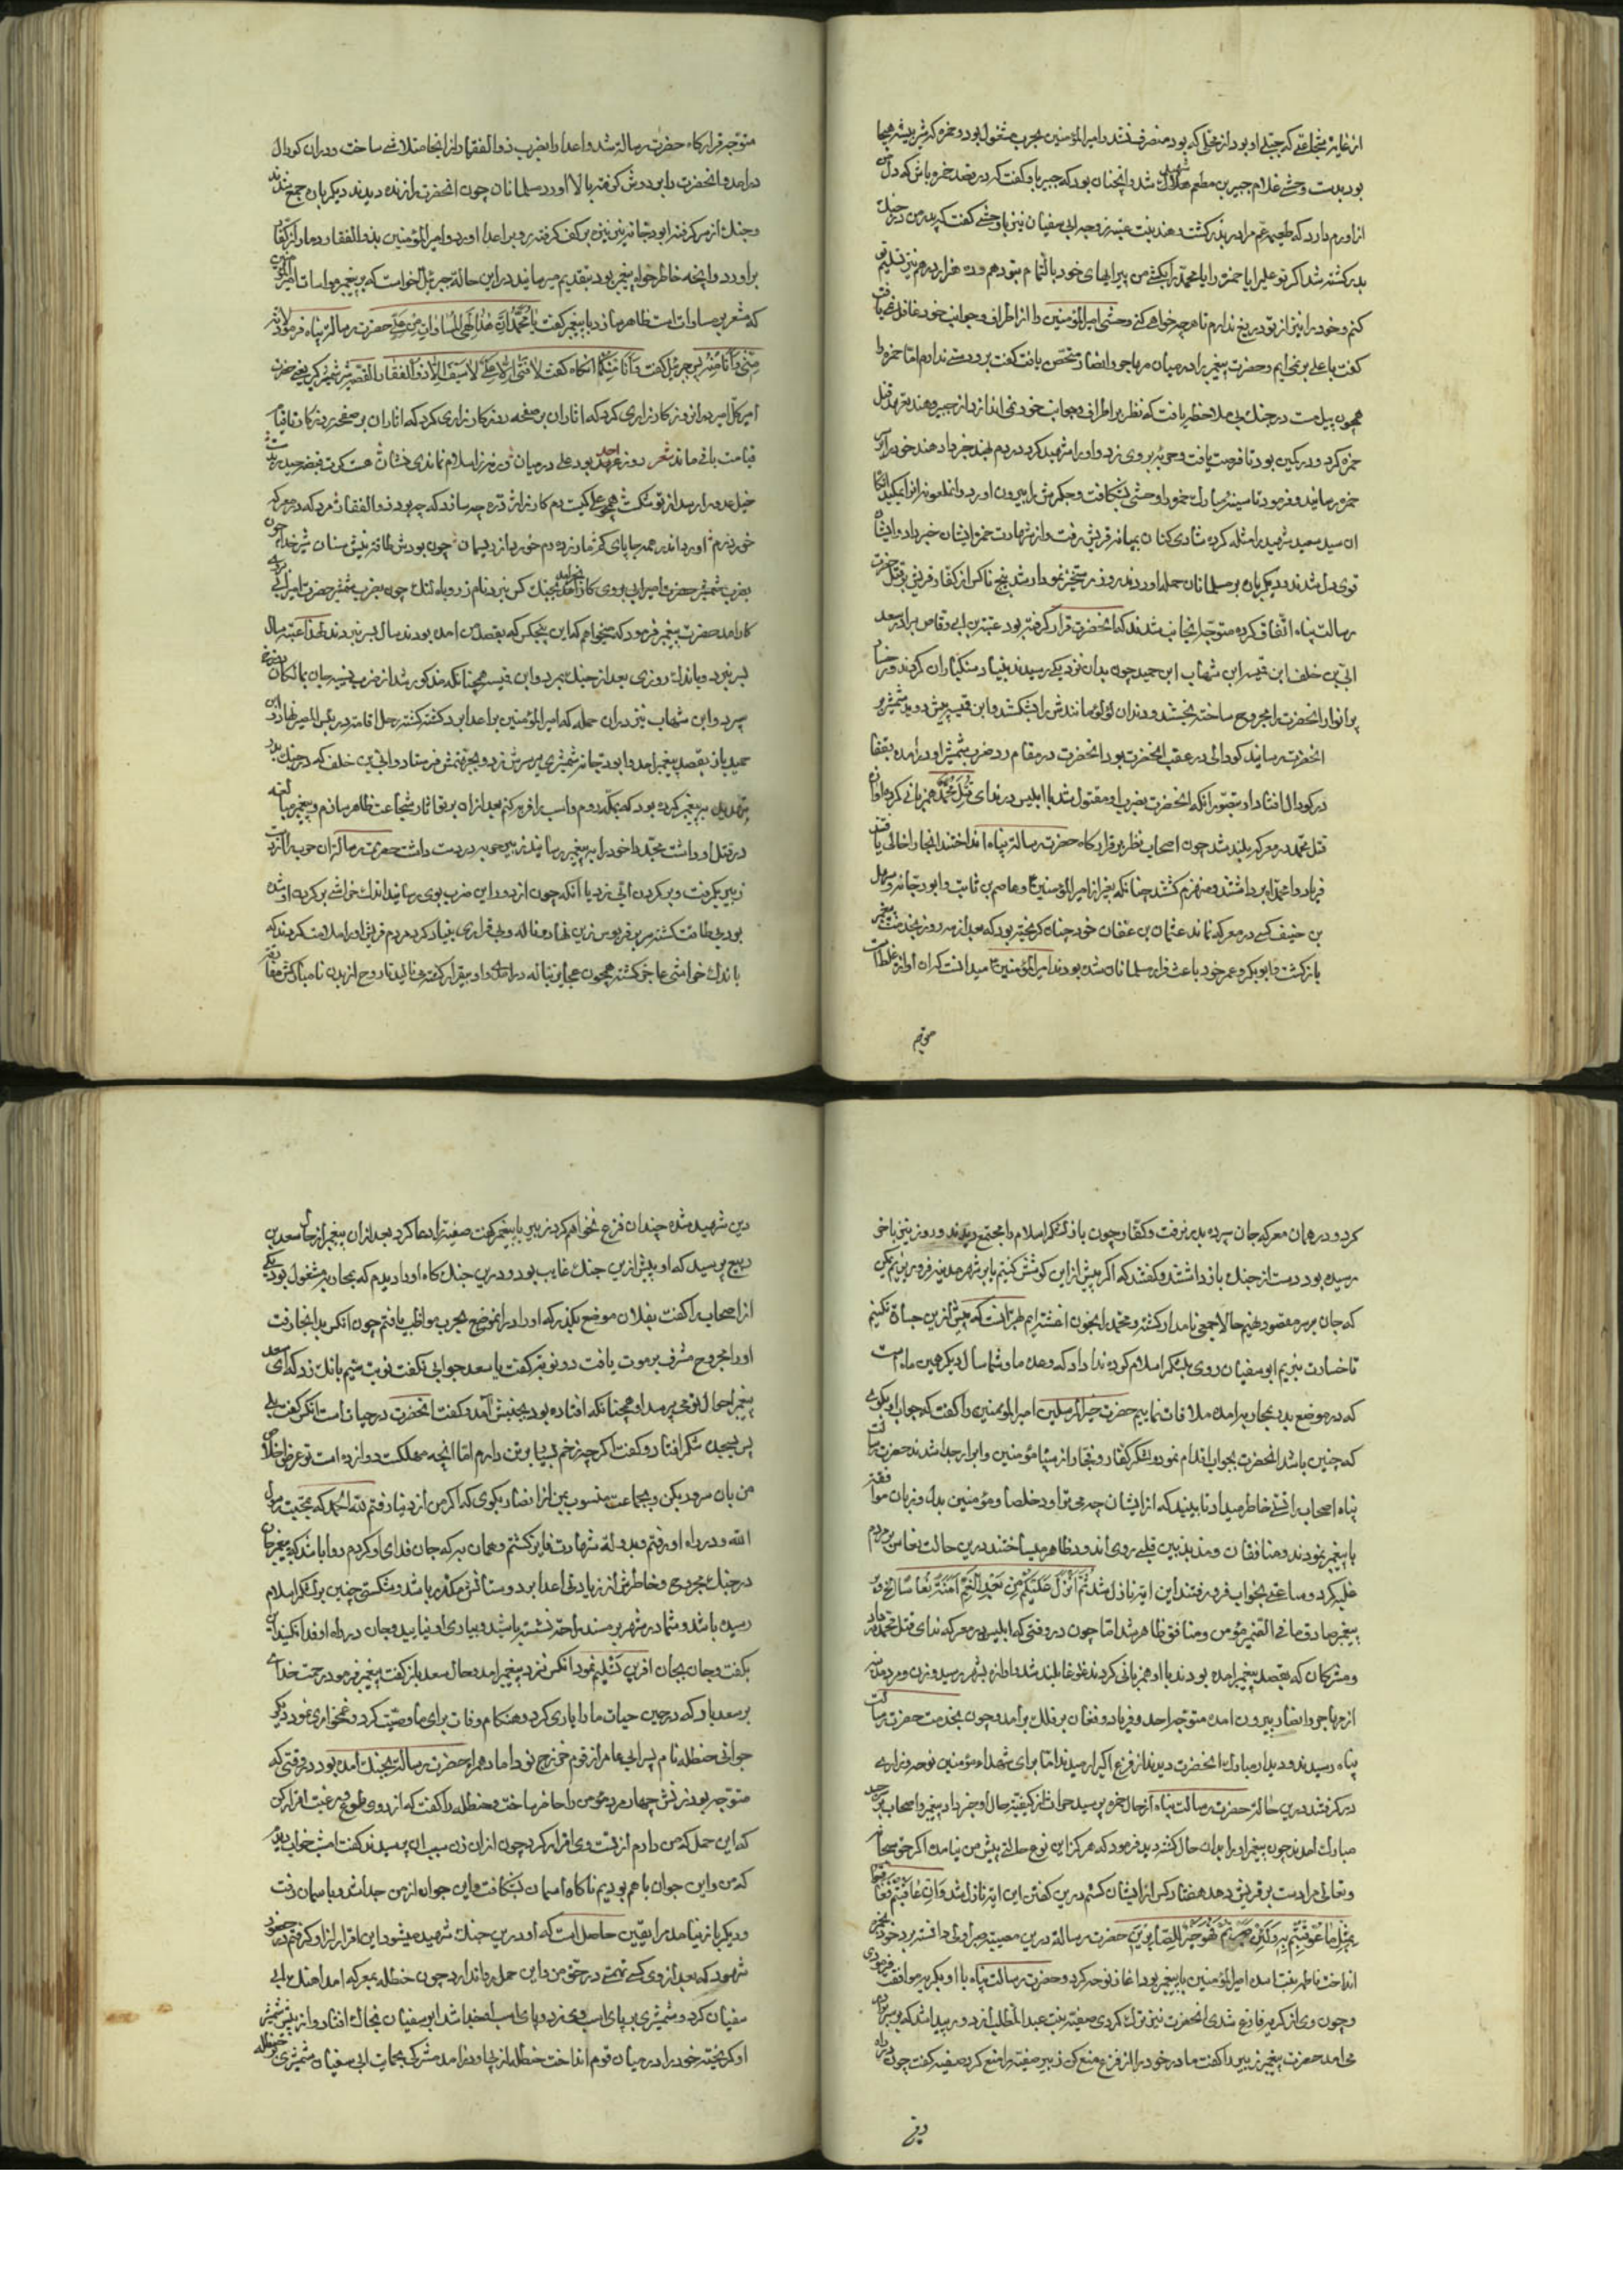 از غایة شجاعتی که جبلی او بود از محلی که بود منصرف نشد و امیرالمؤمنین بحرب مشغول بود و حمزه که شیر بیشه هیجا
بود بدست وحشی غلام جبیر بن مطعم شهید شد و انچنان بود که جبیر باو گفت که در قصد حمزه باش که دل من
از او رم دارد که طعیمه عم مرا در بدر کشت و هند بنت عتبه زوجه ابی سفیان نیز با وحشی گفت که پدر من در جنك
بدر کشته شد اگر تو علی را یا حمزه را یا محمد را بکشی من پیرایهای خود بالتمام بتو دهم و ده هزار درهم نیز تسلیم تو
کنم و خود را نیز از تو دریغ ندارم تا هر چه خواهی کنی وحشی امیرالمؤمنین را از اطراف و جوانب خود غافل نمییافت
گفت با علی بر نمی ایم و حضرت پیغمبر را در میان مهاجر و انصار متحصن یافت گفت برو دستی ندارم اما حمزه را
همچون پیل مست در جنك بی ملاحظه یافت که نظر بر اطراف و جوانب خود نمی اندازد از جبیر و هند متعهد قتل
حمزه کرد و در کمین بود تا فرصت یافت و حربه بر وی زد و او را شهید کرد در دم بهند خبر داد هند خود را بر
حمزه رسانید و فرمود تا سینه مبارك حمزه را وحشی بشکافت و جگرش را بیرون اورد و انملعونه انرا بمکید انگاه
ان سید سعید شهید را مثله کرده شادی کنان بمیانه قریش رفت و از شهادت حمزه ایشان خبر داد و ایشان
قوی دل شدند و دیگر باره بر مسلمانان حمله اوردند و روز رستخیز نمودار شد پنج تا کس از کفار قریش بر قتل حضرت
رسالت پناه اتفاق کرده متوجه انجانب شدند که انحضرت قرار گرفته بود عتبة بن ابی وقاص برادر سعد
ابی بن خلف ابن قمیه ابن شهاب ابن حمید چون بدان نزدیکی رسیدند بنیاد سنکباران کردند و رخسار
پر انوار انحضرت را مجروح ساخته بخستند و دندان لؤلؤ مانندش را بشکستند و ابن قمیه پیش دوید شمشیر بر
انحضرت رسانید کودالی در عقب انحضرت بود انحضرت در مقام رد ضرب شمشیر او در امده بقفا
در کودال افتاد او بتصور انکه انحضرت بضرب او مقتول شد با ابلیس در ندای قتل محمد همزبانی کرده اواز
قتل محمد در معرکه بلند شد چون اصحاب نظر بر قرارکاه حضرت رسالة پناه انداختند انجا را خالی یافتند
فریاد وا محمداه برداشتند و منهزم کشتند چنانکه بغیر از امیرالمؤمنین و عاصم بن ثابت و ابو دجانه و سهل
بن حنیف کسی در معرکه نماند عثمان بن عفان خود چنان کریخته بود که بعد از سه روز بخدمت پیغمبر
بازکشت و ابو بکر و عمر خود باعث فرار مسلمانان شده بودند امیرالمؤمنین میدانست که ان اوازه غلط است
متوجه قرارکاه حضرت رسالة شد و اعدا را بضرب ذوالفقار از انجا متلاشی ساخت و در ان کودال
در امد و انحضرت را بر دوش کرفته بالا اورد مسلمانان چون انحضرت را زنده دیدند دیکر باره جمع شدند
و جنك از سر کرفتند ابو دجانه نیز تیغ بر کف کرفته رو بر اعدا اورد و امیرالمؤمنین بذوالفقار دمار از کفار
براورد و انچه خاطر خواه پیغمبر بود بتقدیم میرسانید در این حالة جبرئیل خواست که بر پیغمبر مواسات امیرالمؤمنین
که مشعر بر مساوات است ظاهر سازد با پیغمبر کفت یا محمد ان هذا لهی المساوات من علی حضرت رسالة پناه فرمود لانه
منی و انا منه پس جبرئیل کفت و انا منکما انکاه کفت لا فتی الا علی لا سیف الا ذوالفقار القصه شمشیر یعنی حضرت
امیر کل امیر در ان روز کارزاری کرد که اثار ان بر صفحه روزکار تا قیام
قیامت باقی ماند شعر روز احد بود علی در میان ورنه ز اسلام نماندی نشان
خوردنم اورد اندر همه جا پای کم زاد نزد دم خورد از دیهان چون بودش طاقت نیش سنان شیر خدا چون
بضرب شمشیر حضرت امیر ابی
کار امد حضرت پیغمبر فرمود که میخواهم که این پنجکس که بقصد من امده بودند سال بسر نبرند لهذا عتبه سال
بسر نبرد و باندك روزی بعد از جنك بمرد و ابن قمیه همچنانکه مذکور شد از ضرب
سپرد و ابن شهاب نیز در ان حمله که امیرالمؤمنین بر اعدا برد کشته کشته رحل اقامت در بئس المصیر نهاد و ابن
حمید باز بقصد پیغمبر امد و ابو دجانه شمشیری بر سرش زد و بجهنمش فرستاد و ابی بن خلف که در جنك بدر
قتل او داشت خود را به پیغمبر رسانید زبیر حربه در دست داشت حضرت رسالة ان حربه را از دست
زبیر بکرفت و بر کردن ابی زد با انکه چون از دور این ضرب بوی رسانید اندك خراشی بر کردن او شده
بود بی طاقت کشته سر بر قربوس زین نهاد و ناله و بی قراری بنیاد کرد مردم قریش او را ملامت کردند که
باندك خراشی عاجز کشته همچون عجایز بناله درامدی و او بیقرار کشته می نالید تا روح از بدن نامبارکش مفارقت
کرد و در همان معرکه جان سپرده بدرنرفت و کفار چون باز لشکر اسلام را مجتمع دیدند و روز نیز باخر
رسیده بود دست از جنك بازداشتند و کفتند که اکر پیش از این کوشش کنیم یا بر شهر مدینه فرو ریزیم یمکن
که جان بر سر مقصود نهیم حالا جمعی نامدار کشته و محمد را بخون اغشته ایم بهتر انست که بیش از این جسارة نکنیم
تا خسارت نبریم ابو سفیان روی بلشکر اسلام کرده ندا داد که وعده ما و شما سال دیکر همین ماه است
که در موضع بدر بمحاربه امده ملاقات نماییم حضرت خیر المرسلین امیرالمؤمنین را کفت که جواب او بکوی
که چنین باشد انحضرت بجواب اقدام نموده لشکر کفار و فجار از سپاه مؤمنین و ابرار جدا شدند حضرت رسالت
پناه اصحاب را تسلی خاطر میداد تا ببیند که از ایشان چه می تراود خلصا و مؤمنین بدل و زبان موافقت
با پیغمبر نمودند و منافقان و مذبذبین قلبی روی اندود ظاهر میساختند در این حالت نعاس بر مردم
غلبه کرد و ساعتی بخواب فرو رفتند این ایه نازل شد ثم انزل علیکم من بعد الغم امنة نعاسا الخ
پیغمبر صادق مافی الضمیر مؤمن و منافق ظاهر شد اما چون در وقتی که ابلیس در معرکه ندای قتل محمد در داد
و مشرکان که بقصد پیغمبر امده بودند با او همزبانی کردند غوغا بلند شد و اوازه بشهر رسید و زن و مرد مدینه
از مهاجر و انصار بیرون امده متوجه احد و فریاد و فغان بر فلك برامد و چون بخدمت حضرت رسالت
پناه رسیدند و دیدار مبارك انحضرت دیدند از فزع اکبر ارمیدند اما برای شهداء مؤمنین نوحه و زاری
در کرفتند در این حالة حضرت رسالت پناه از حال حمزه پرسید کیفیة حال او خبر داد پیغمبر و اصحاب بر سر جسد
مبارك امدند چون پیغمبر او را بدان حال کشته دید فرمود که هرکز این نوع حالتی پیش من نیامده اکر حق سبحانه
و تعالی مرا دست بر قریش دهد هفتاد کس از ایشان کشم در این کفتن این ایة نازل شد و ان عاقبتم فعاقبوا
بمثل ما عوقبتم به ولئن صبرتم لهو خیر الصابرین حضرت رسالة در این مصیبت صبر اولی دانسته
انداخت فاطمه بنت اسد امیرالمؤمنین با پیغمبر بود اغاز نوحه کرد و حضرت رسالت پناه با او بکریه موافقت فرمودی
و چون وی از کریه فارغ شدی انحضرت نیز ترك کردی صفیه بنت عبد المطلب از دور پیدا شد که بر سر برادر
می امد حضرت پیغمبر زبیر را کفت مادر خود را از فزع منع کن زبیر صفیه را منع کرد صفیه کفت چون در راه
دین شهید شده چندان فزع نخواهم کرد زبیر با پیغمبر کفت صفیه را دعا کرد بعد از ان پیغمبر از حال سعد بن
ربیع پرسید که او پیش از این جنك غایب بود و در این جنك کاه او را دیدم که بمحاربه مشغول بود یکی
از اصحاب را کفت بفلان موضع بکذر که او را در انموضع بحرب مواظب یافتم چون انکس بدانجا رفت
او را مجروح مشرف بر موت یافت دو نوبت کفت یا سعد جوابی نکفت نوبت سیم بانك زد که ای سعد
پیغمبر احوال تو می پرسد او همچنانکه افتاده بود بجنبش امد و کفت انحضرت در حیات است انکس کفت بلی
پس بسجده شکر افتاد و کفت اکرچه زخم بسیار بر تن دارم اما انچه مهلکست دوازده است تو عرض اخلاص
من بان سرور بکن و بجماعت منسوب بمن از انصار بکوی که اکر من از دنیا رفتم لله الحمد که بمحبت رسول
الله و در راه او رفتم و بدولة شهادت فایز کشتم و همان به که جان فدای او کردم روا باشد که پیغمبر خدا
در جنك مجروح و خاطرش از زیادتی اعدا بر دوستانش مکدر باشد و شکستی چنین بر لشکر اسلام
رسیده باشد و شما در شهر بر مسند راحت نشسته باشید و بیاری او نیایید و جان در راه او فدا نکنید این
بکفت و جان بجان افرین تسلیم نمود انکس نزد پیغمبر امد و حال سعد باز کفت پیغمبر فرمود رحمت خدای
بر سعد باد که در حین حیات ما را یاری کرد و هنکام وفات برای ما وصیت کرد و غمخواری نمود دیکر
جوانی حنظله نام پسر ابی عامر از قوم خزرج نو داماد همراه حضرت رسالة بجنك امده بود در وقتی که
متوجه بود زنش چهار مرد مؤمن را حاضر ساخت و حنظله را کفت که از روی طوع و رغبت اقرار کن
که این حمل که من دارم از تست وی اقرار کرد چون از ان زن سبب ان پرسیدند کفت امشب خواب دیدم
که من و این جوان با هم بودیم ناکاه اسمان بشکافت و این جوان از من جدا شد و باسمان رفت
و دیکر باز نیامد مرا یقین حاصل است که او در این جنك شهید میشود این اقرار از او کرفتم در حضور
شهود که بعد از وی کسی تهمتی در حق من و این حمل روا ندارد چون حنظله بمعرکه امد اهنك ابی
سفیان کرد و شمشیری بر پای اسب وی زد و پای اسب جدا شد ابو سفیان بخاك افتاد و از پیش شمشیر
او کریخته خود را در میان قوم انداخت حنظله از پی او درامد مشرکی بحمایت ابی سفیان شمشیری بر حنظله